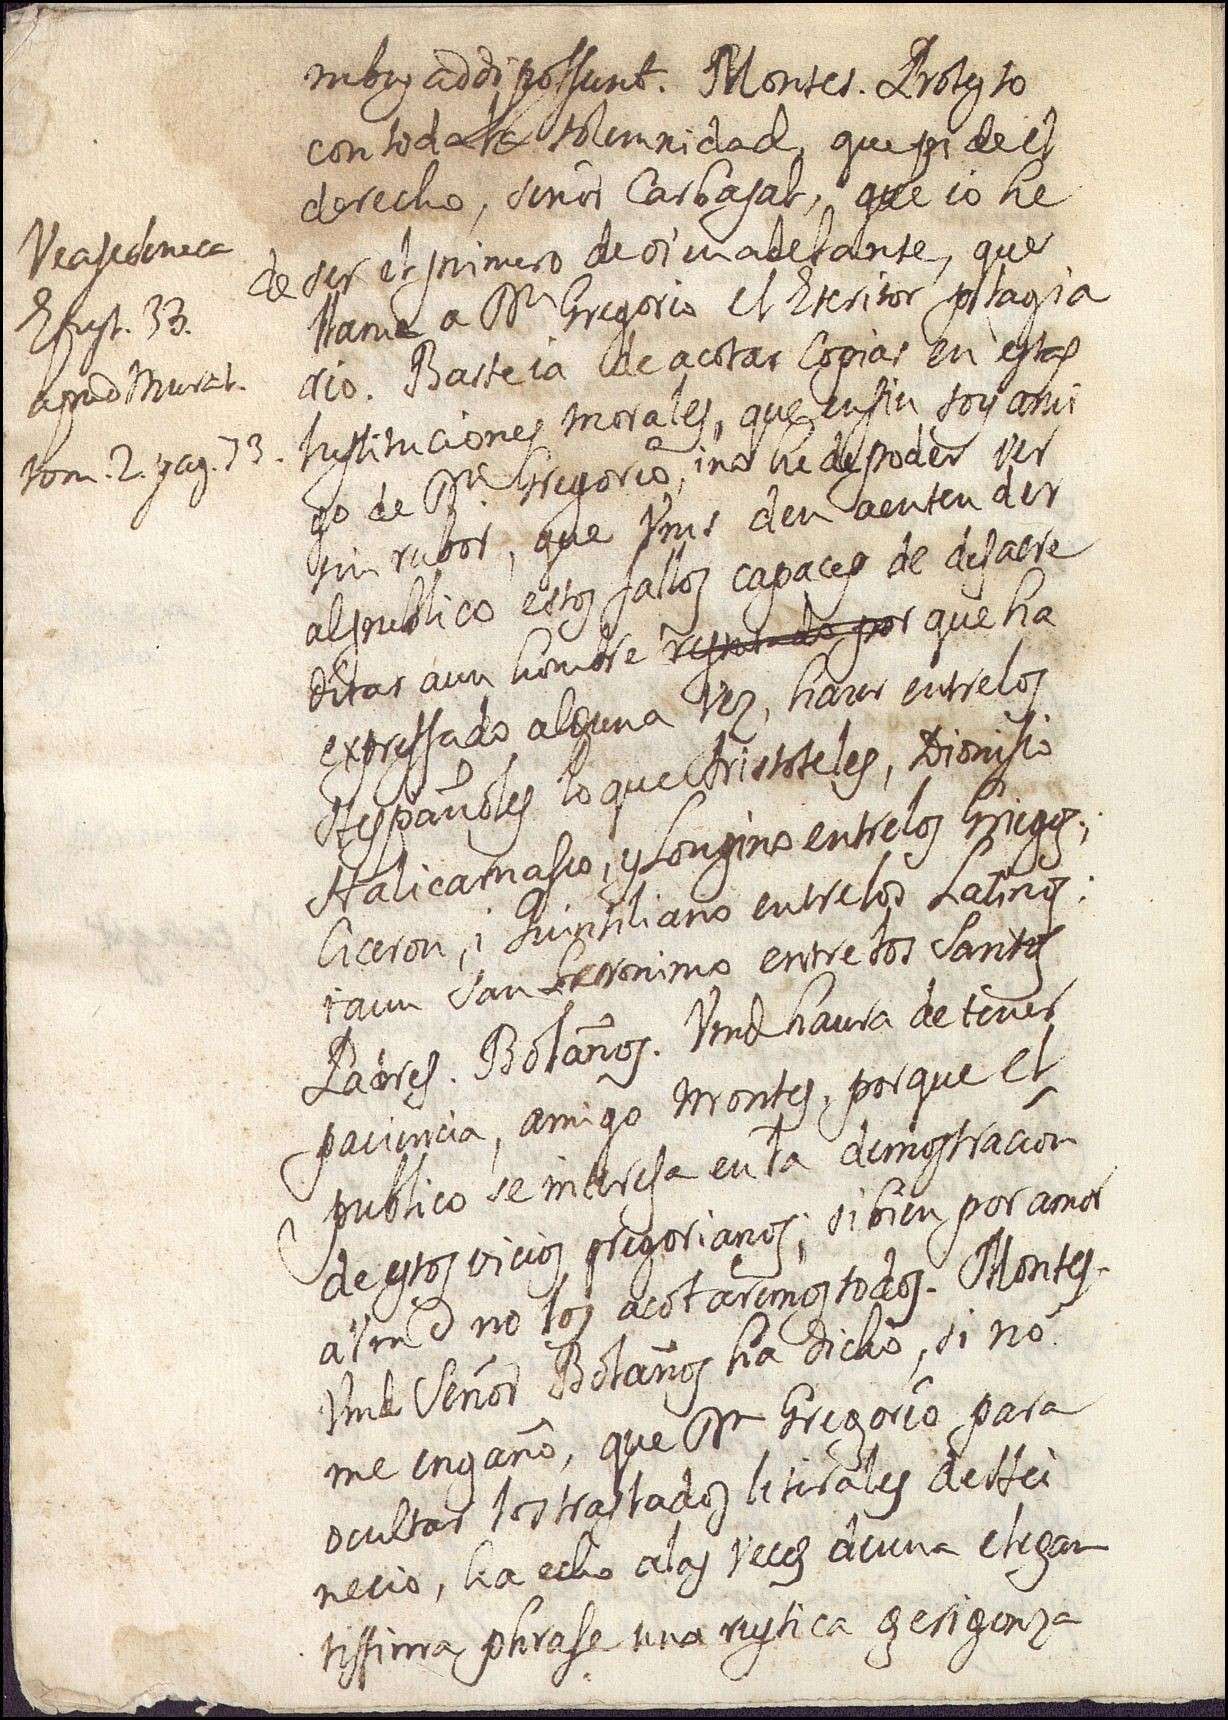 nibus addi possunt. Montes. Protesto
con toda la solemnidad, que pide el
derecho, señor Carbajal, que io he
de ser el primero de oi en adelante, que
llame a Dn Gregorio el Escritor plagia
rio. Baste ia de acotar copias en estas
Instituciones morales, que enfin soy ami
go de Dn Gregorio, i no he de poder ver
sin rubor, que Vms den aentender
al publico estos fallos capaces de desacre
ditar aun hombre reputado por que ha
expressado alguna vez, haver entre los
Españoles lo que Aristoteles, Dionisio
Halicarnasio, y Longino entre los Griegos;
Ciceron, i Quintiliano entre los Latinos;
i aun San Geronimo entre los Santos
Padres. Bolaños. Vmd haura de tener
paciencia, amigo Montes, porque el
publico se interesa en la demostracion
de estos vicios gregorianos; si bien por amor
a Vmd no los acotaremos todos. Montes.
Vmd Señor Bolaños ha dicho, si no
me engaño, que Dn Gregorio para
ocultar los traslados literales de Hei
necio, ha echo alas veces de una elegan
tissima phrase una rustica gerigonza
Vease Seneca
Epist. 33.
apud Murat.
tom. 2. pag. 73.